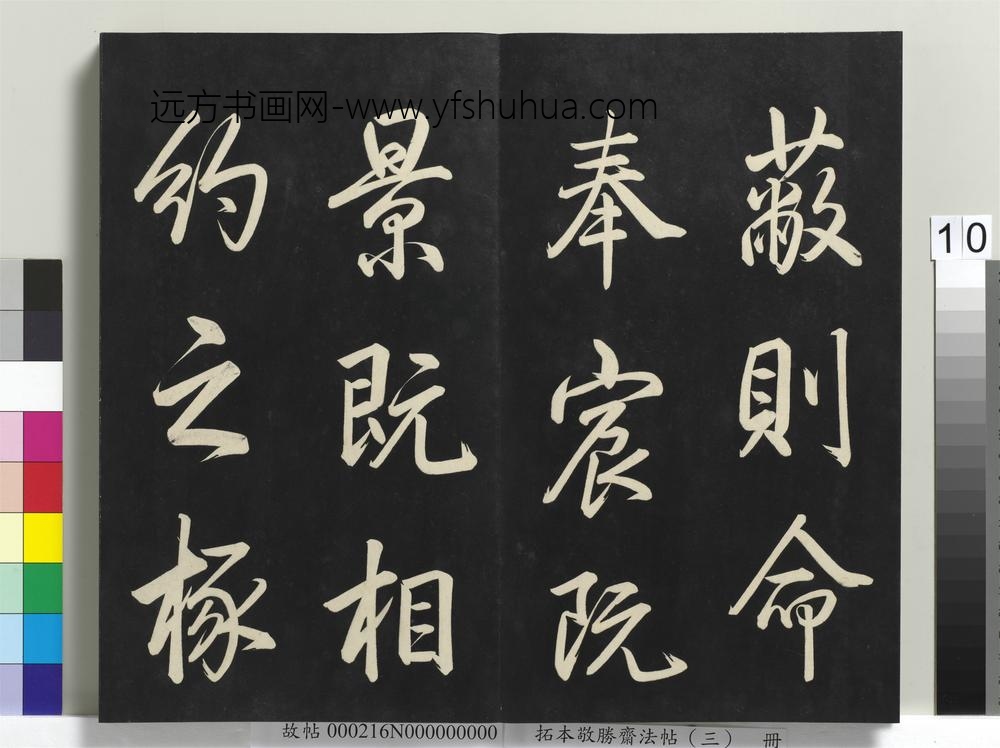 远方书画网-www.yfshuhua.com
蔽則命
奉宸阮
景既相
約之椽
10
故帖 000216N000000000 拓本敬勝齋法帖（三） 冊